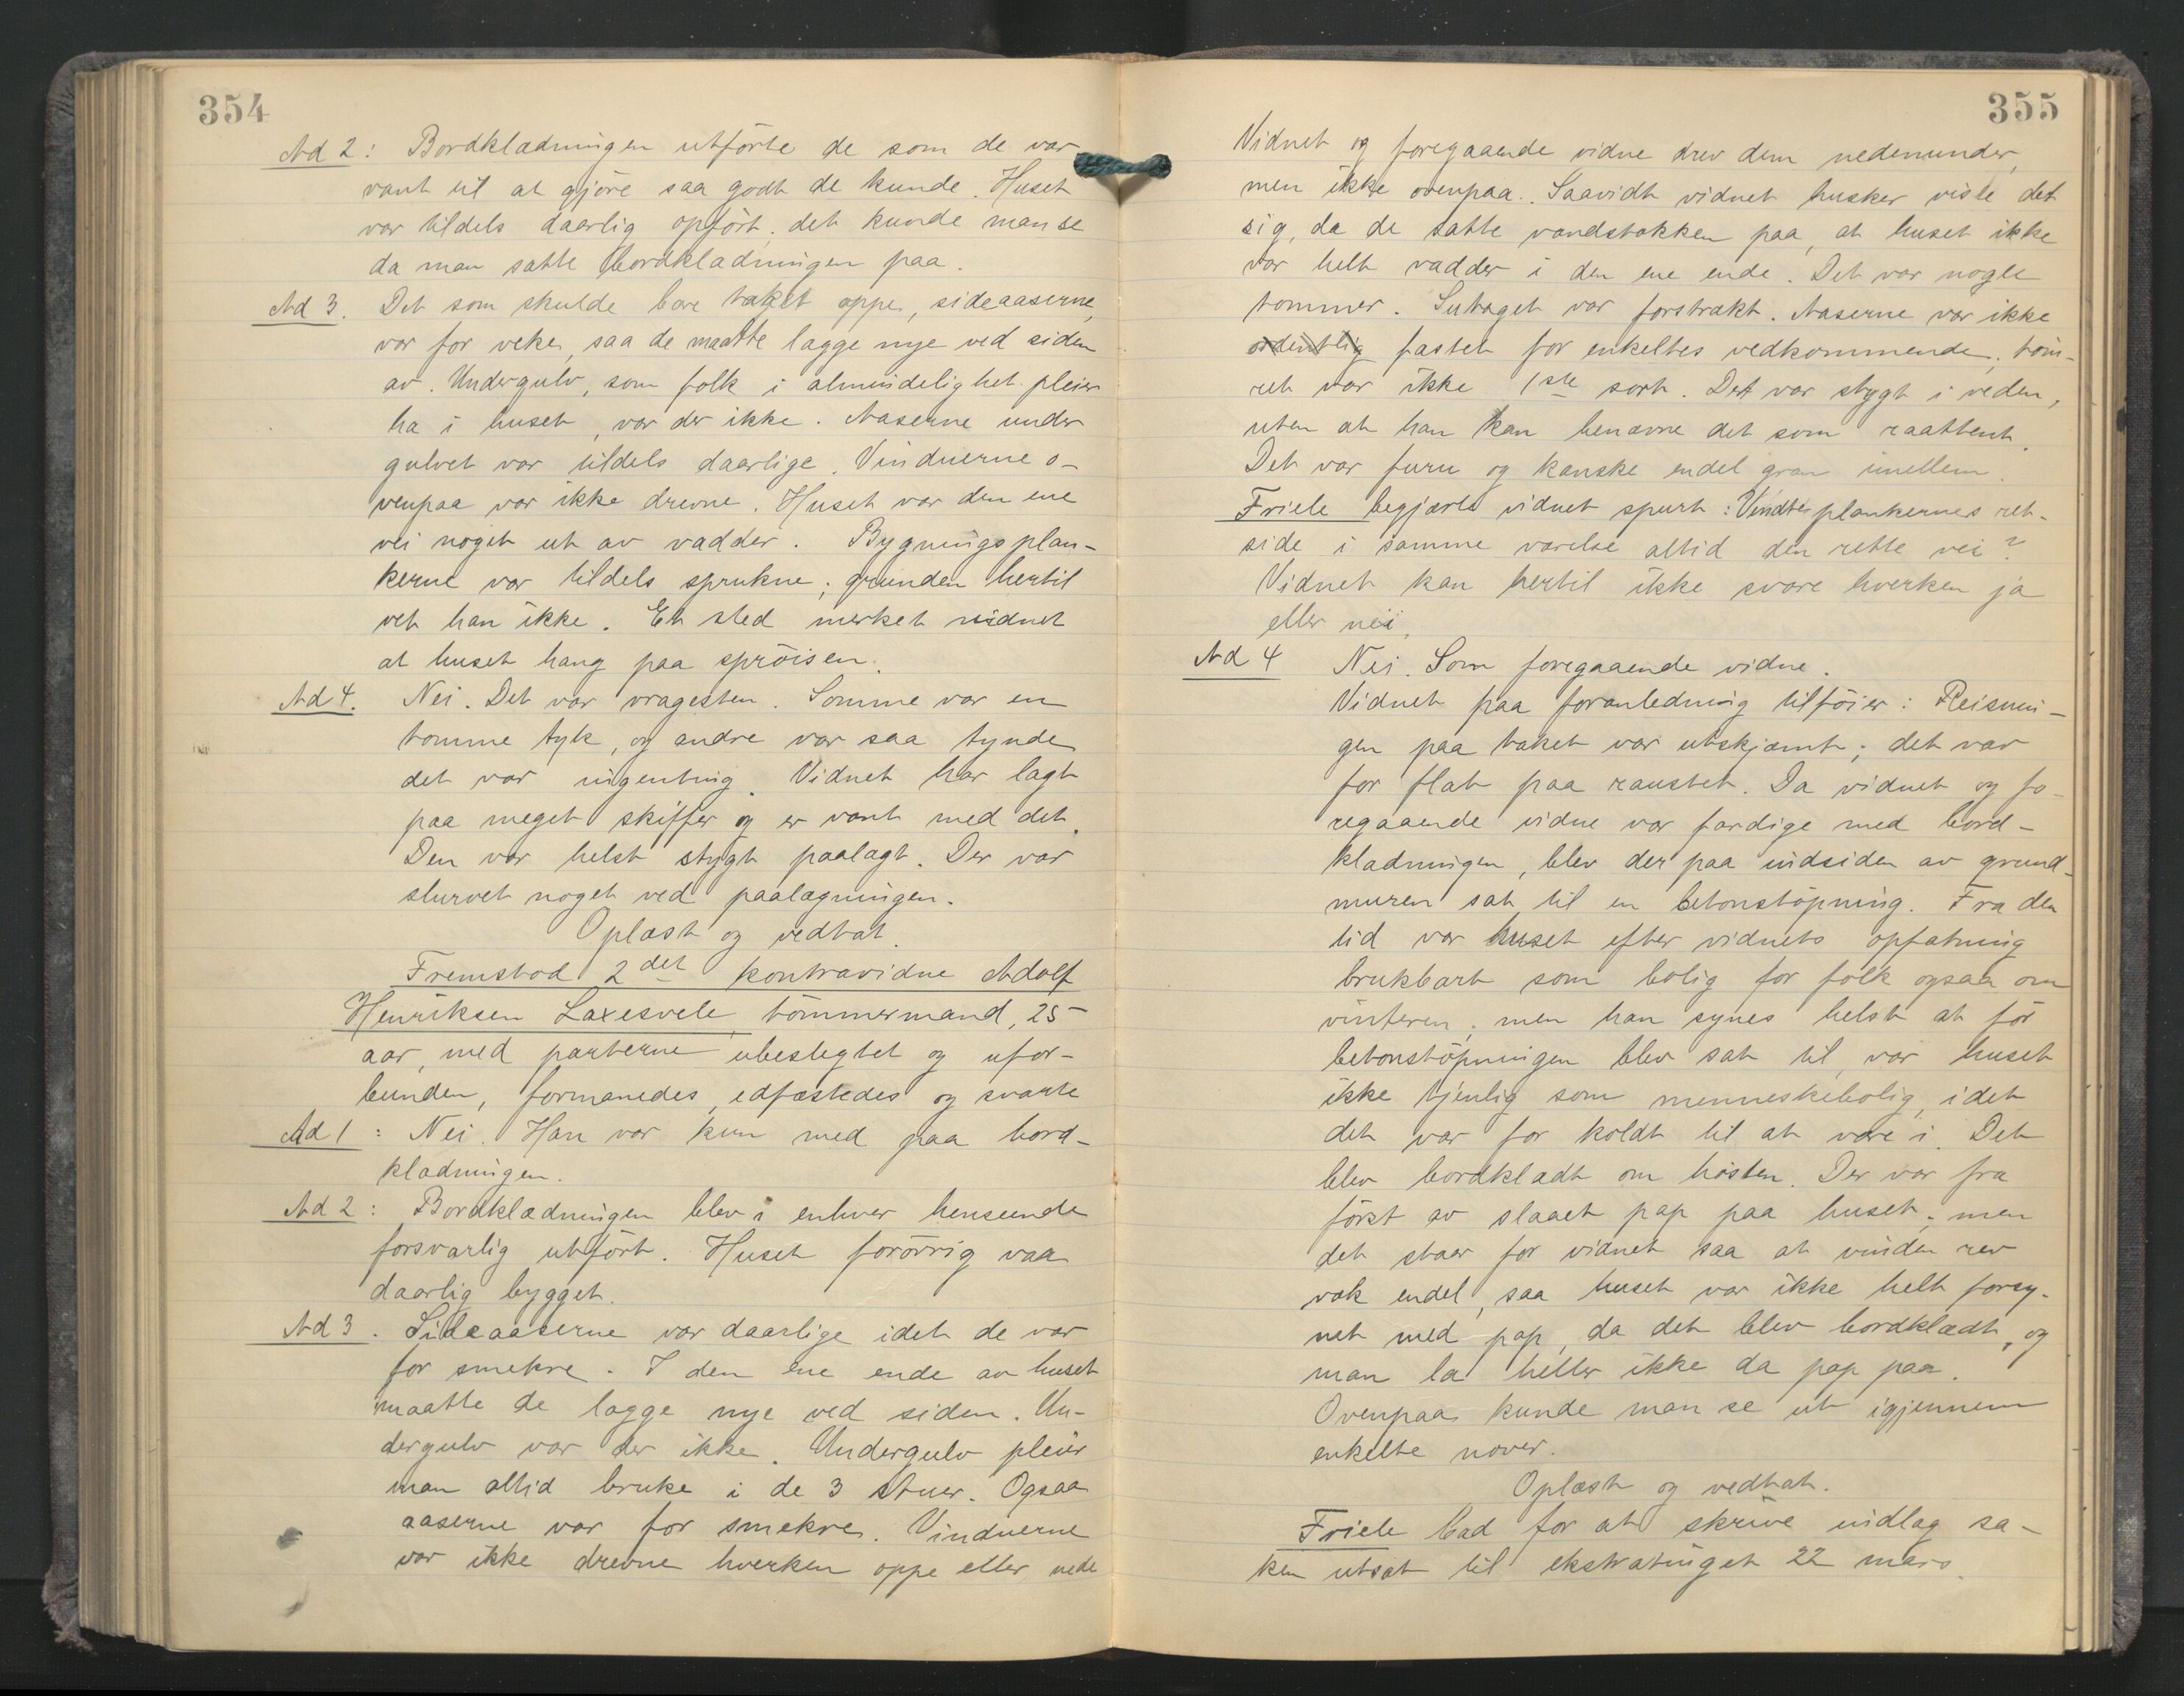 354
Ad 2: Bordklædningen utførte de som de var
vant til at gjøre saa godt de kunde. Huset
var tildels daarlig opført; det kunde man se
da man satte bordklædningen paa.
Ad 3. Det som skulde bære taket oppe, sideaaserne,
var for veke, saa de maatte lægge nye ved siden
av. Undergulv, som folk i almindelighet pleier
ha i huset, var der ikke. Aaserne under
gulvet var tildels daarlige. Vinduerne o-
venpaa var ikke drevne. Huset var den ene
vei noget ut av vadder. Bygningsplan-
kerne var tildels sprukne; grunden hertil
vet han ikke. Et sted merket vidnet
at huset hang paa sprøisen.
Ad 4. Nei. Det var vragesten. Somme var en
tomme tyk, og andre var saa tynde
det var ingenting. Vidnet har lagt
paa meget skiffer og er vant med det.
Den var helst stygt paalagt. Der var
slurvet noget ved paalægningen.
Oplæst og vedtat.
Fremstod 2det kontravidne Adolf
Henriksen Laxesvele, tømmermand, 25
aar, med parterne ubeslegtet og ufor-
bunden, formanedes, edfæstedes og svarte
Ad 1: Nei. Han var kun med paa bord-
klædningen.
Ad 2: Bordklædningen blev i enhver henseende
forsvarlig utført. Huset forøvrig vaa
daarlig bygget.
Ad 3. Sideaaserne var daarlige idet de var
for smekre. I den ene ende av huset
maatte de lægge nye ved siden. Un-
dergulv var der ikke. Undergulv pleier
man altid bruke i de 3 stuer. Ogsaa
aaserne var for smekre. Vinduerne
var ikke drevne hverken oppe eller nede
355
Vidnet og foregaaende vidne drev dem nedenunder,
men ikke ovenpaa. Saavidt vidnet husker viste det
sig, da de satte vandstokken paa, at huset ikke
var helt vadder i den ene ende. Det var nogle
tommer. Sutaget var forstrakt. Aaserne var ikke
ordentlig fastet for enkeltes vedkommende; tøm-
ret var ikke 1ste sort. Det var stygt i veden,
uten at han kan benævne det som raattent.
Det var furu og kanske endel gran imellem.
Friele begjærte vidnet spurt: Vendte plankernes ret-
side i samme værelse altid den rette vei?
Vidnet kan hertil ikke svare hverken ja
eller nei.
Ad 4 Nei. Som foregaaende vidne.
Vidnet paa foranledning tilføier: Reisnin-
gen paa taket var utskjæmt; det var
for flat paa raustet. Da vidnet og fo-
regaaende vidne var færdige med bord-
klædningen, blev der paa indsiden av grund-
muren sat til en betonstøpning. Fra den
tid var huset efter vidnets opfatning
brukbart som bolig for folk ogsaa om
vinteren; men han synes helst at før
betonstøpningen blev sat til, var huset
ikke tjenlig som menneskebolig, idet
det var for koldt til at være i. Det
blev bordklædt om høsten. Der var fra
først av slaaet pap paa huset; men
det staar for vidnet saa at vinden rev
væk endel, saa huset var ikke helt forsy-
net med pap, da det blev bordklædt, og
man la heller ikke da pap paa.
Ovenpaa kunde man se ut igjennem
enkelte nover.
Oplæst og vedtat.
Friele bad for at skrive indlæg sa-
ken utsat til ekstratinget 22 mars.